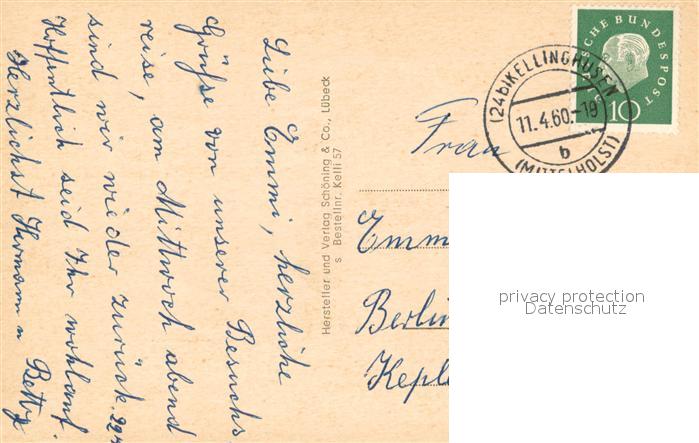 Liebe Emmi, herzliche
Grüße von unserer Besuchs
reise, am Mittwoch abend
sind wir wieder zurück.
Hoffentlich seid Ihr wohlauf.
Herzlichst Hermann u Betty
Hersteller und Verlag Schöning & Co., Lübeck
s Bestellnr. Kelli 57
DEUTSCHE BUNDESPOST
10
(24b) KELLINGHUSEN
11.4.60.-19
b
(MITTELHOLST)
Frau
Emm
Berlin
Kepl
privacy protection
Datenschutz